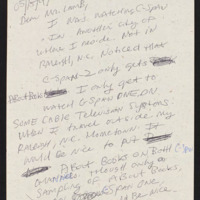 Dear Mr. Lamb,
I was watching C-Span
in Another city of
where I reside. Not in
Raleigh, NC. Noticed that
C-Span-2 only gets
I only get to
watch C-SPAN ONE ON
SOME CABLE Television SYSTEMS.
When I travel outside my
Raleigh, NC. Hometown. It
would be nice to put
About Books on Both C-
though only a
Sampling of About Books,
C-Span One.
would Be Nice